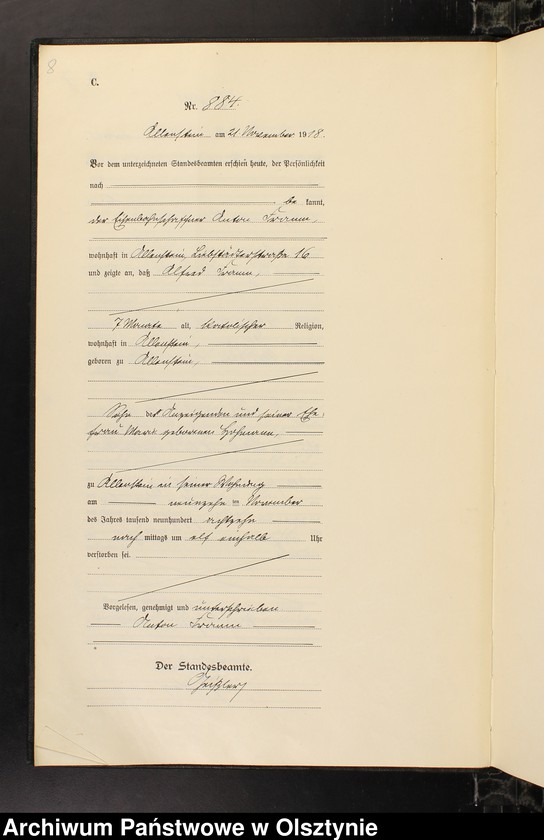 8
C.
Nr. 884.
Allenstein am 21 November 1918.
Vor dem unterzeichneten Standesbeamten erschien heute, der Persönlichkeit
nach
be kannt,
der Eisenbahnschaffner Anton
wohnhaft in Allenstein, Liebstädterstraße 16
und zeigte an, daß Alfred
7 Monate alt, katolischer Religion,
wohnhaft in Allenstein,
geboren zu Allenstein,
Sohn des Anzeigenden und seiner Ehe-
frau geborenen
zu Allenstein in seiner Wohnung
am neunzehn ten November
des Jahres tausend neunhundert achtzehn
nach mittags um elf einhalb Uhr
verstorben sei.
Vorgelesen, genehmigt und unterschrieben
Anton
Der Standesbeamte.
Archiwum Państwowe w Olsztynie